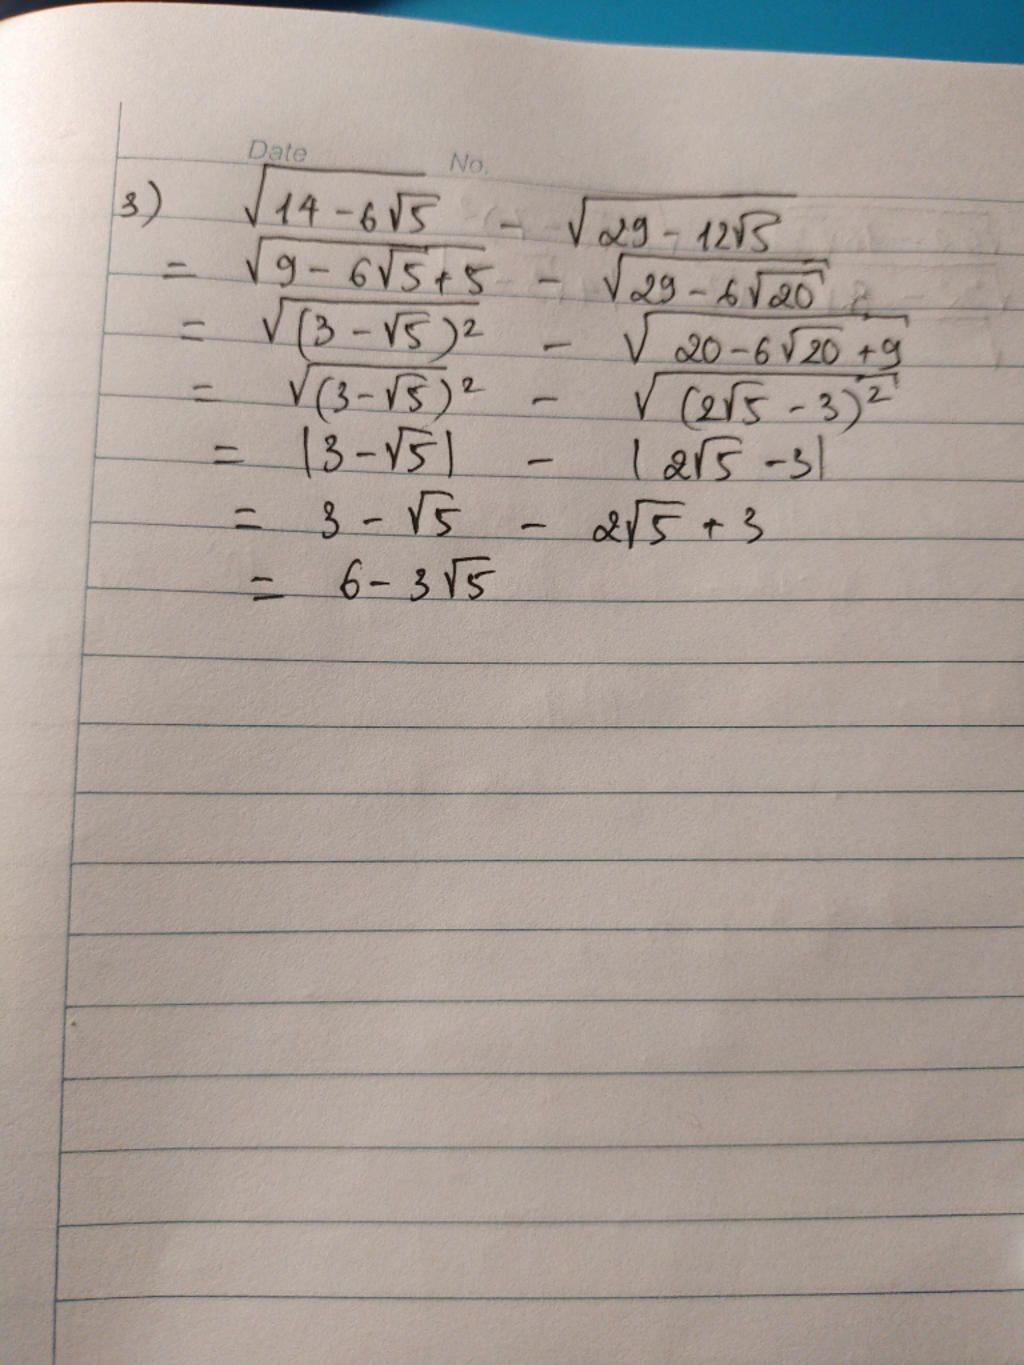 Date No.
3) √(14 - 6√5) - √(29 - 12√5)
= √(9 - 6√5 + 5) - √(29 - 6√20)
= √((3 - √5)²) - √(20 - 6√20 + 9)
= √((3 - √5)²) - √((2√5 - 3)²)
= |3 - √5| - |2√5 - 3|
= 3 - √5 - 2√5 + 3
= 6 - 3√5